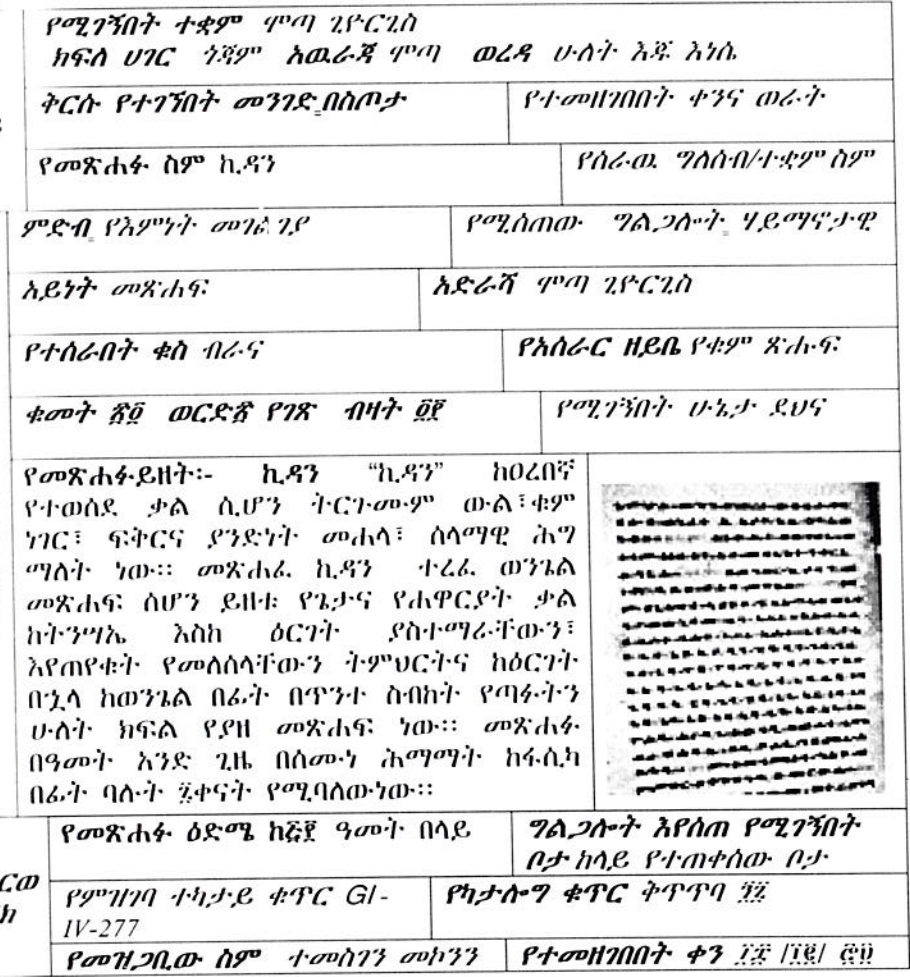 የሚገኝበት ተቋም ሞጣ ጊዮርጊስ
ክፍለ ሀገር ጎጃም አዉራጃ ሞጣ ወረዳ ሁለት እጁ እነሴ
ቅርሱ የተገኘበት መንገድ በስጦታ የተመዘገበበት ቀንና ወራት
የመጽሐፉ ስም ኪዳን የሰራዉ ግለሰብ/ተቋም ስም
ምድብ የእምነት መገልገያ የሚሰጠው ግልጋሎት ሃይማኖታዊ
አይነት መጽሐፍ አድራሻ ሞጣ ጊዮርጊስ
የተሰራበት ቁስ ብራና የአሰራር ዘይቤ የቁም ጽሑፍ
ቁመት ወርድ የገጽ ብዛት የሚገኝበት ሁኔታ ደህና
የመጽሐፉ ይዘት፡- ኪዳን “ኪዳን” ከዐረበኛ
የተወሰደ ቃል ሲሆን ትርጉሙም ውል፣ቁም
ነገር፣ ፍቅርና ያንድነት መሐላ፣ ሰላማዊ ሕግ
ማለት ነው። መጽሐፈ ኪዳን ተረፈ ወንጌል
መጽሐፍ ሰሆን ይዘቱ የጌታና የሐዋርያት ቃል
ከትንሣኤ እስከ ዕርገት ያስተማራቸውን፣
እየጠየቁት የመለሰላቸውን ትምህርትና ከዕርገት
በኋላ ከወንጌል በፊት በጥንተ ስብከት የጣፉትን
ሁለት ክፍል የያዘ መጽሐፍ ነው። መጽሐፉ
በዓመት አንድ ጊዜ በሰሙነ ሕማማት ከፋሲካ
በፊት ባሉት ፯ቀናት የሚባለውነው።
የመጽሐፉ ዕድሜ ዓመት በላይ ግልጋሎት እየሰጠ የሚገኝበት
ቦታ ከላይ የተጠቀሰው ቦታ
የምዝገባ ተከታይ ቁጥር GI-
IV-277
የካታሎግ ቁጥር ቅጥጥባ
የመዝጋቢው ስም ተመስገን መኮንን የተመዘገበበት ቀን